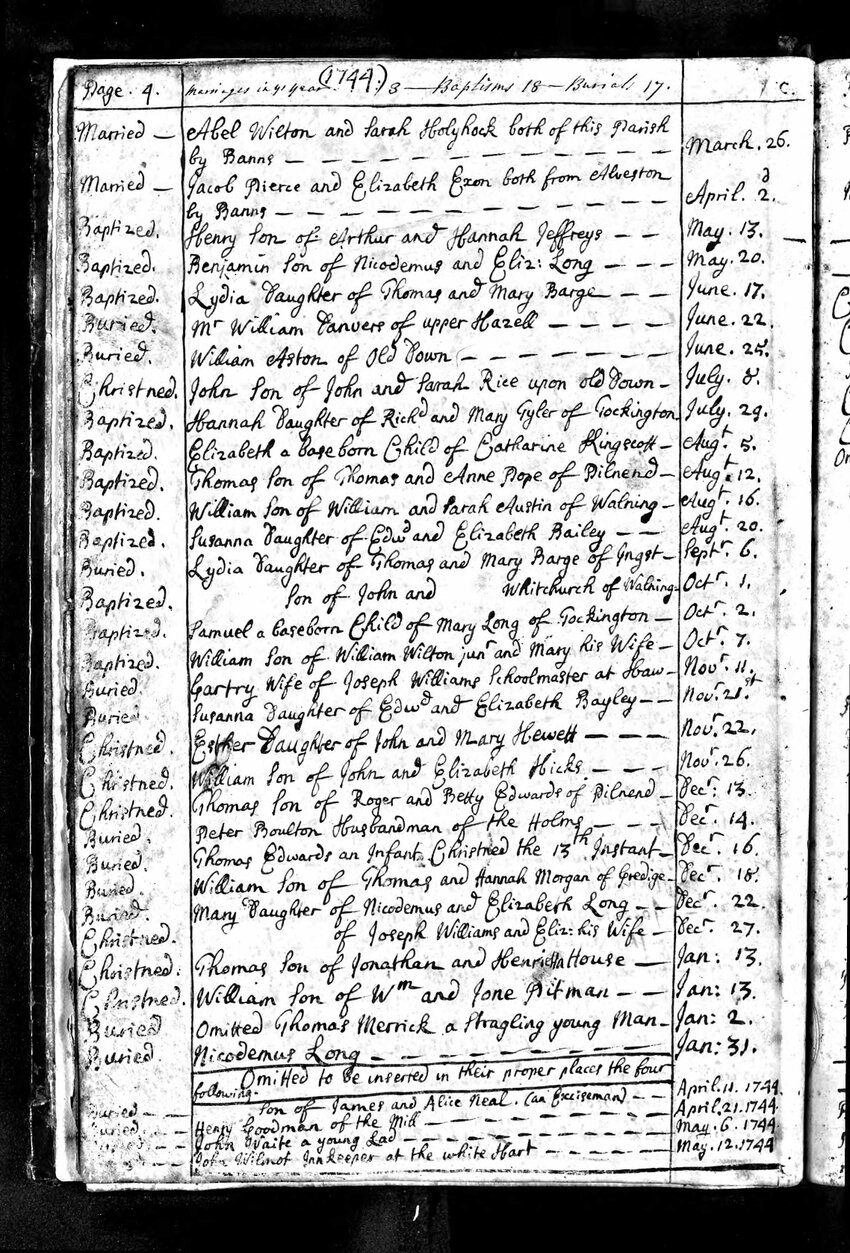 Page. 4. marriages in ys year (1744.) 3 — Baptisms 18 — Burials 17. C.
Married — Abel Wilton and Sarah Holyhock both of this Parish
by Banns — — — — — — — — — — March. 26.
Married — Jacob Pierce and Elizabeth Exon both from Alveston
by Banns — — — — — — — — — — April. 2d.
Baptized. Henry Son of Arthur and Hannah Jeffreys — — May. 13.
Baptized. Benjamin Son of Nicodemus and Eliz: Long — — — May. 20.
Baptized. Lydia Daughter of Thomas and Mary Barge — — June. 17.
Buried. Mr William Danvers of upper Hazell — — — — June. 22.
Buried. William Aston of Old Down — — — — — — June. 25.
Christned. John Son of John and Sarah Rice upon old Down — July. 8.
Baptized. Hannah Daughter of Richd and Mary Tyler of Tockington July. 29.
Baptized. Elizabeth a baseborn Child of Catharine Kingscott — Augt. 5.
Baptized. Thomas Son of Thomas and Anne Pope of Pilnend — Augt. 12.
Baptized. William Son of William and Sarah Austin of Walning — Augt. 16.
Baptized. Susanna Daughter of Edwd and Elizabeth Bailey — — Augt. 20.
Buried. Lydia Daughter of Thomas and Mary Barge of Ingst — Septr. 6.
Baptized. Son of John and Whitchurch of Walning — Octr. 1.
Baptized. Samuel a baseborn Child of Mary Long of Tockington — Octr. 2.
Baptized. William Son of William Wilton junr and Mary his Wife — Octr. 7.
Buried. Gartry Wife of Joseph Williams Schoolmaster at Haw — Novr. 11.
Buried Susanna Daughter of Edwd and Elizabeth Bayley — — Novr. 21st
Christned. Esther Daughter of John and Mary Hewett — — — Novr. 22.
Christned. William Son of John and Elizabeth Hicks — — — Novr. 26.
Christned. Thomas Son of Roger and Betty Edwards of Pilnend — Decr. 13.
Buried. Peter Boulton Husbandman of the Holms — — — Decr. 14.
Buried. Thomas Edwards an Infant Christned the 13th Instant — Decr. 16.
Buried. William Son of Thomas and Hannah Morgan of Gredige — Decr. 18.
Buried. Mary Daughter of Nicodemus and Elizabeth Long — — Decr. 22.
Christned. of Joseph Williams and Eliz: his Wife — Decr. 27.
Christned. Thomas Son of Jonathan and Henrietta House — Jan: 13.
Christned. William Son of Wm and Jone Pitman — — Jan: 13.
Buried Omitted Thomas Merrick a Stragling young Man — Jan: 2.
Buried. Nicodemus Long — — — — — — — — Jan: 31.
Omitted to be inserted in their proper places the four
following.
Buried — — Son of James and Alice Neal. (an Exciseman) — — April. 11. 1744.
Buried. — — Henry Goodman of the Mill — — — — — — April. 21. 1744.
— — John Waite a young Lad — — — — — — May. 6. 1744
— — John Wilmot Innkeeper at the white Hart — — — — May. 12. 1744